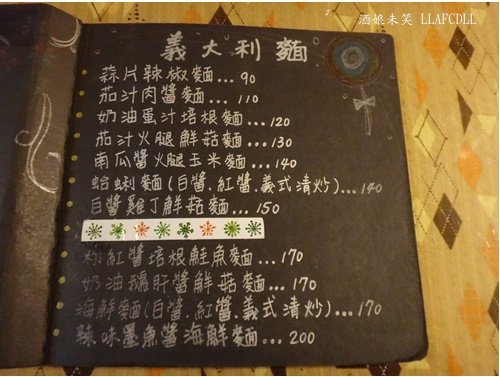 酒娘未笑 LLAFCDLL
義大利麵
蒜片辣椒麵...90
茄汁肉醬麵...110
奶油蛋汁培根麵...120
茄汁火腿鮮菇麵...130
南瓜醬火腿玉米麵...140
蛤蜊麵(白醬.紅醬.義式清炒)...140
白醬雞丁鮮菇麵...150
粉紅醬培根鮭魚麵...170
奶油鵝肝醬鮮菇麵...170
海鮮麵(白醬.紅醬.義式清炒)...170
辣味墨魚醬海鮮麵...200